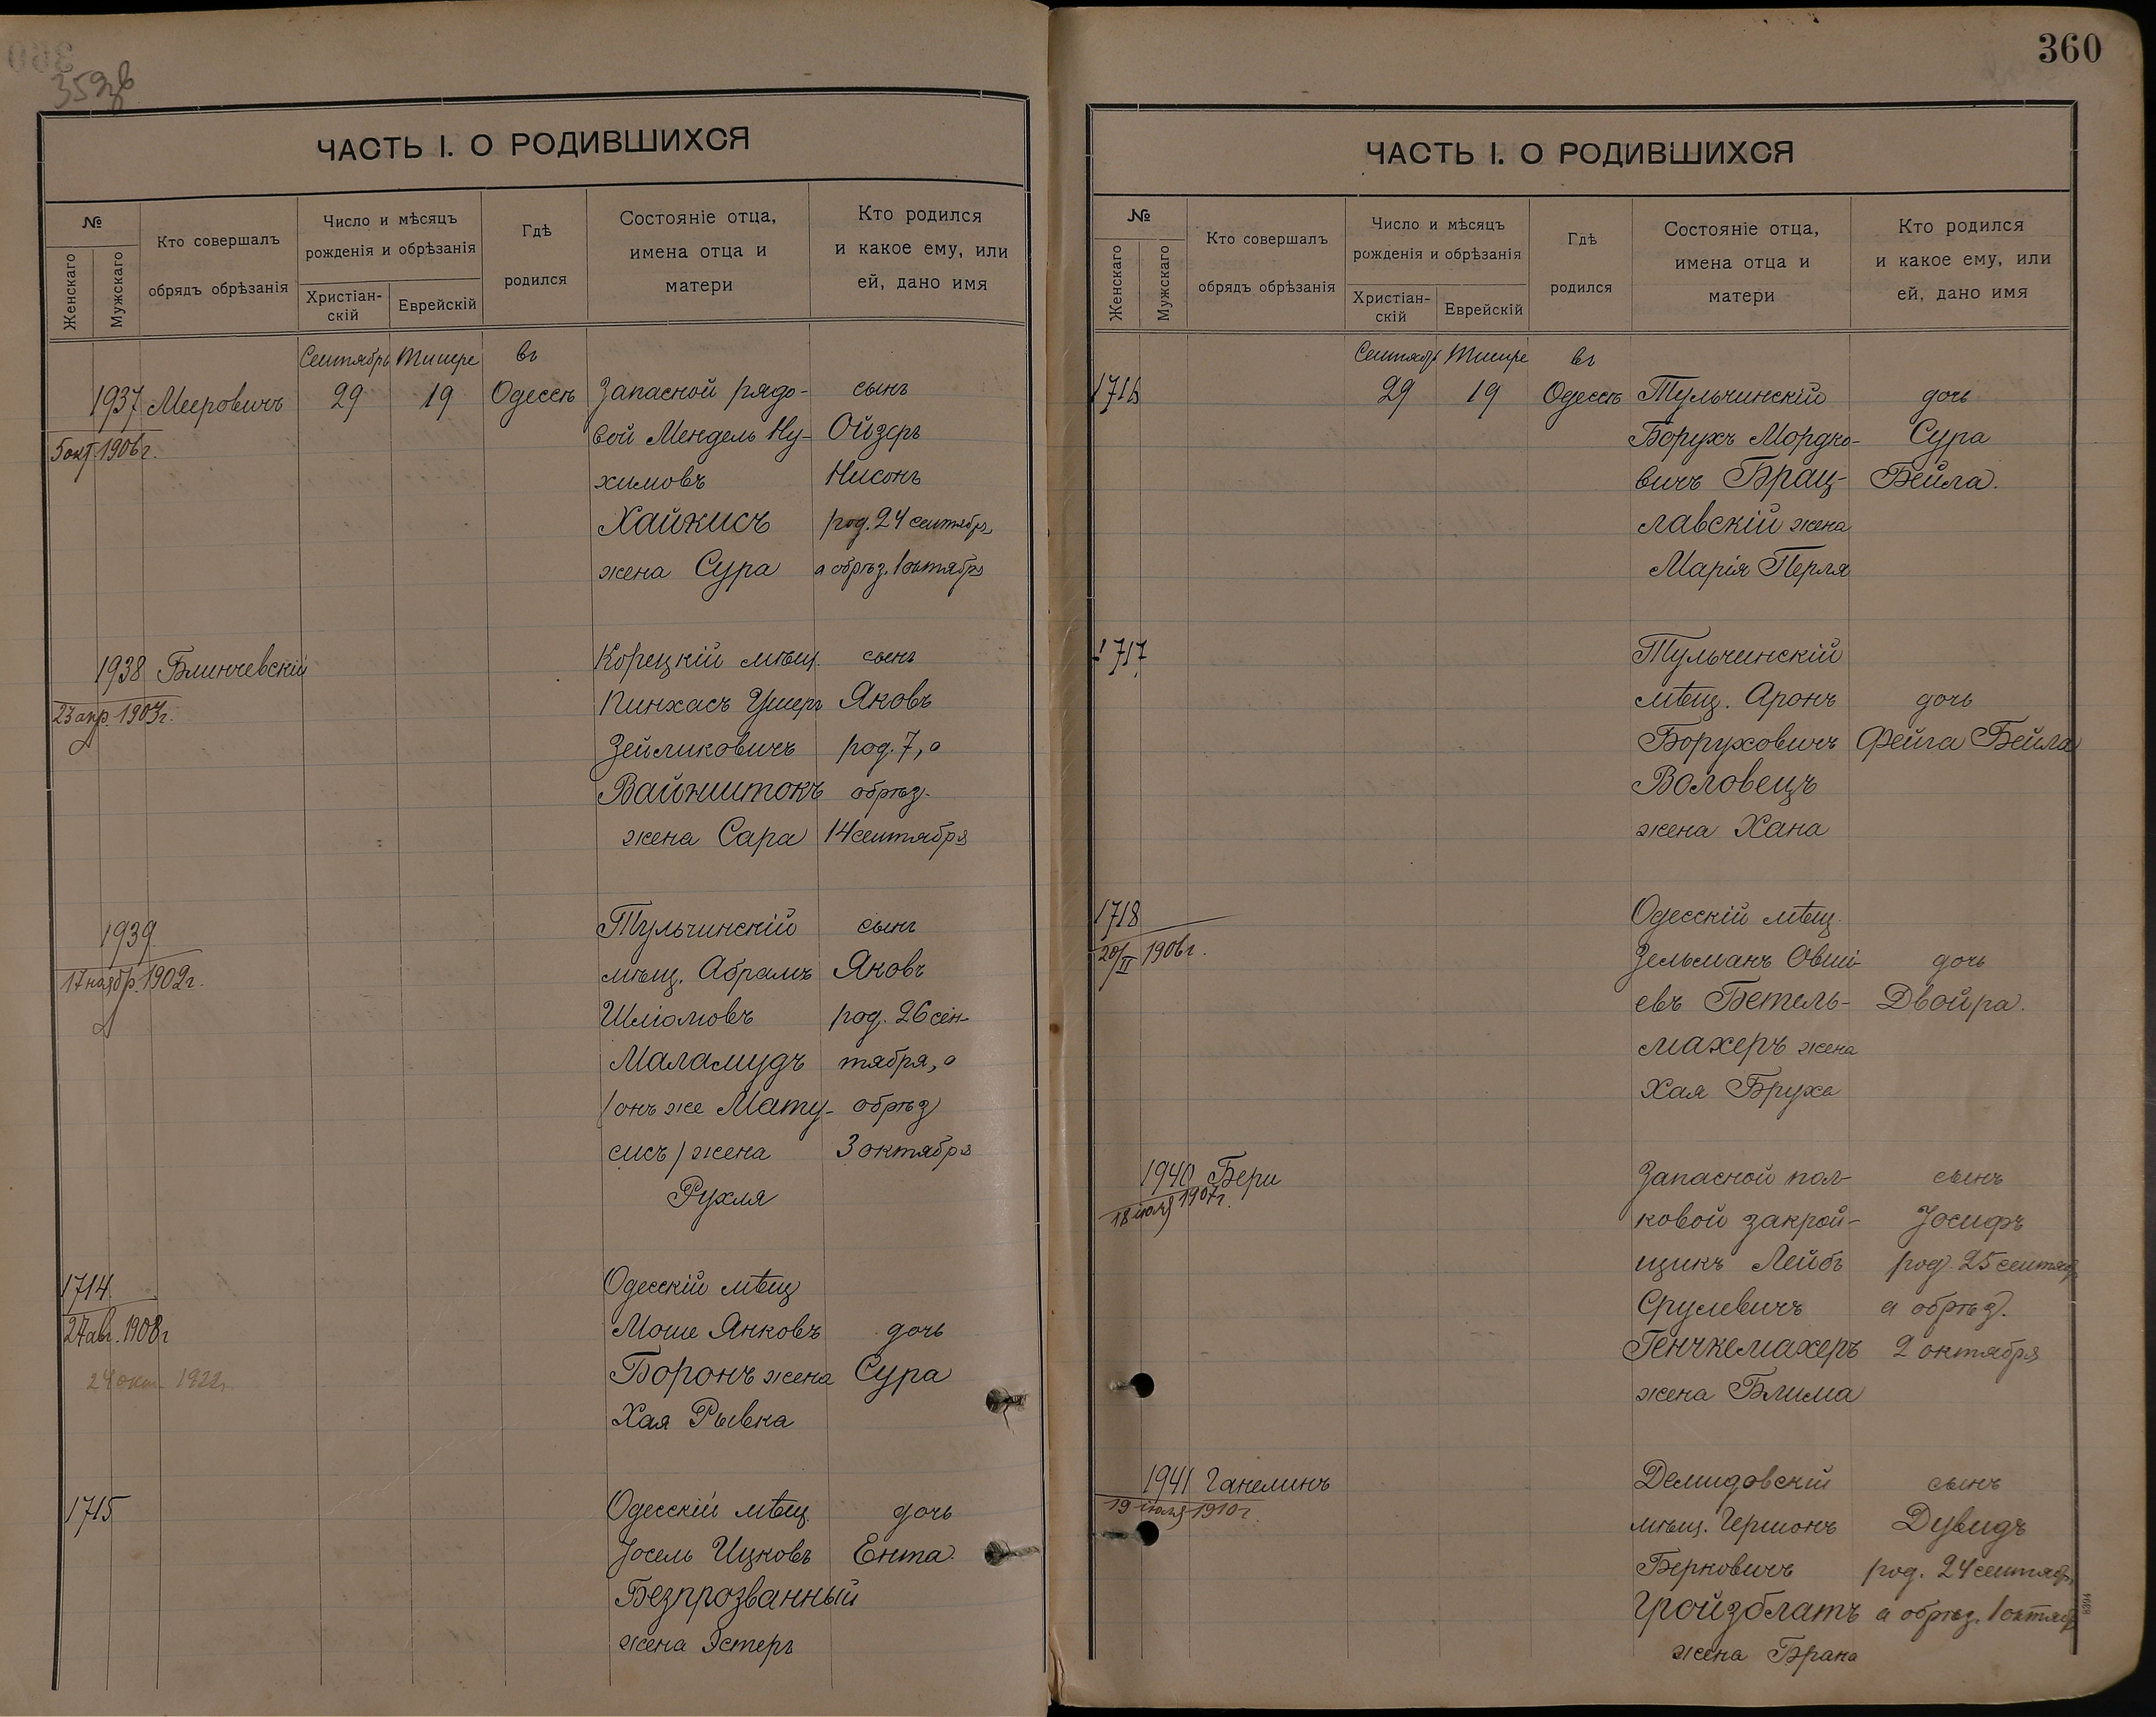 359об
ЧАСТЬ I. О РОДИВШИХСЯ
№
Женскаго
Мужскаго
Кто совершалъ
обрядъ обрѣзанія
Число и мѣсяцъ
рожденія и обрѣзанія
Христіан-
скій
Еврейскій
Гдѣ
родился
Состояніе отца,
имена отца и
матери
Кто родился
и какое ему, или
ей, дано имя
Сентябрь Тишре въ
1937 Мееровичъ 29 19 Одессѣ Запасной рядо- сынъ
5 окт 1906 г. вой Мендель Ну- Ойзеръ
химовъ Нисонъ
Хайкисъ род. 24 сентября,
жена Сура а обрѣз. 1 октября
1938 Блинчевскій Корецкій мѣщ. сынъ
23 апр. 1907 г. Пинхасъ Ушеръ Яковъ
Зейликовичъ род. 7, а
Вайнштокъ обрѣз.
жена Сара 14 сентября
1939 Тульчинскій сынъ
17 ноябр. 1902 г. мѣщ. Абрамъ Яковъ
Шліомовъ род. 26 сен-
Маламудъ тября, а
/онъ же Мату- обрѣз
сисъ/ жена 3 октября
Рухля
1714 Одесскій мѣщ
27 авг. 1908 г Моше Янковъ дочь
24 окт 1922 г. Боронъ жена Сура
Хая Рывка
1715 Одесскій мѣщ. дочь
Іосель Ицковъ Ента.
Безпрозванный
жена Эстеръ
360
ЧАСТЬ I. О РОДИВШИХСЯ
№
Женскаго
Мужскаго
Кто совершалъ
обрядъ обрѣзанія
Число и мѣсяцъ
рожденія и обрѣзанія
Христіан-
скій
Еврейскій
Гдѣ
родился
Состояніе отца,
имена отца и
матери
Кто родился
и какое ему, или
ей, дано имя
Сентябрь Тишре въ
1716 29 19 Одессѣ Тульчинскій дочь
Борухъ Мордко- Сура
вичъ Брац- Бейла.
лавскій жена
Марія Перля
1717 Тульчинскій
мѣщ. Аронъ дочь
Боруховичъ Фейга Бейла
Воловецъ
жена Хана
1718 Одесскій мѣщ.
20/II 1906 г. Зельманъ Овші- дочь
евъ Бетель- Двойра.
махеръ жена
Хая Бруха
1940 Бери Запасной пол- сынъ
18 іюля 1907 г. ковой закрой- Іосифъ
щикъ Лейбъ род. 25 сентяб
Срулевичъ а обрѣз.
Генчкемахеръ 2 октября
жена Блима
1941 Ганелинъ Демидовскій сынъ
19 іюля 1910 г. мѣщ. Гершонъ Дувидъ
Берковичъ род. 24 сентяб,
Гройзблатъ а обрѣз. 1 октяб
жена Брана
6394